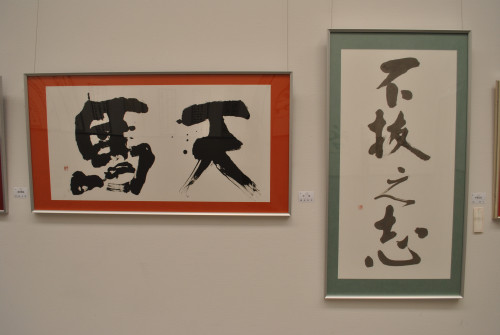 天馬
不抜之志